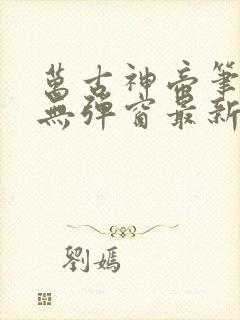 萬古神帝筆
無彈窗最新
劉媽